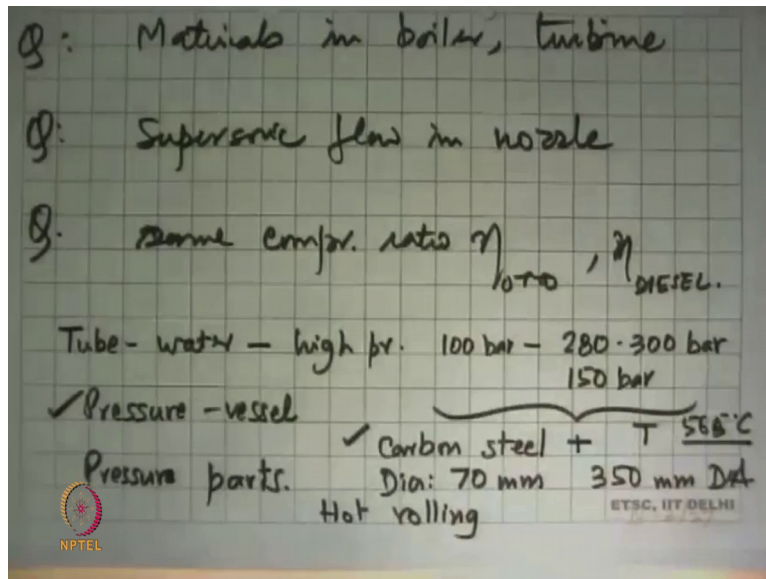 Q: Materials in boiler, turbine
Q: Supersonic flow in nozzle
Q. same compr. ratio η OTTO , η DIESEL.
Tube - water - high pr. 100 bar - 280-300 bar
150 bar
✓ Pressure - vessel
✓ Carbon steel + T 565°C
Pressure parts. Dia: 70 mm 350 mm DIA
Hot rolling
ETSC, IIT DELHI
NPTEL